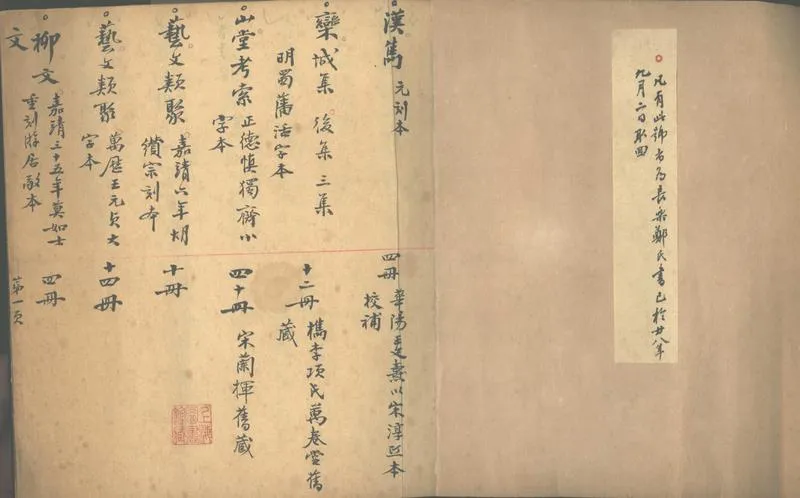 ○凡有此號者為長樂鄭氏書已於廿八年
九月二日取回
○漢雋 元刻本 四冊 華陽王以宋淳熙本
校補
○欒城集 後集 三集 十二冊 檇李項氏萬卷堂舊
明蜀藩活字本 藏
○山堂考索 正德慎獨齋小 四十冊 宋蘭揮舊藏
字本
○藝文類聚 嘉靖六年胡 十冊
纘宗刻本
○藝文類聚 萬歷王元貞大 十四冊
字本
○柳文 嘉靖三十五年莫如士 四冊
重刻游居敬本
文
第一頁